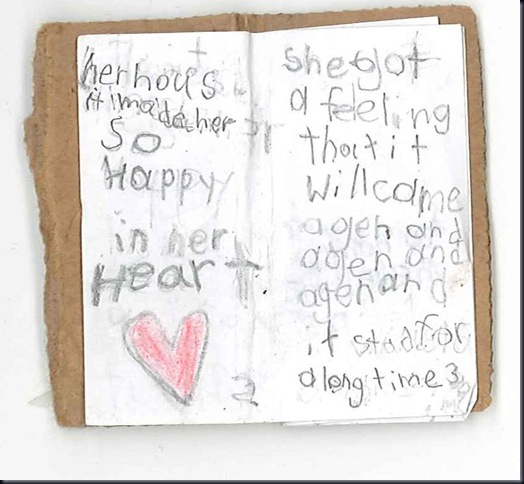 her hous
it madedher
so
Happy
in her
Heart.
2
she got
a feeling
that it
will come
agen and
agen and
agen and
it stad for
a long time 3